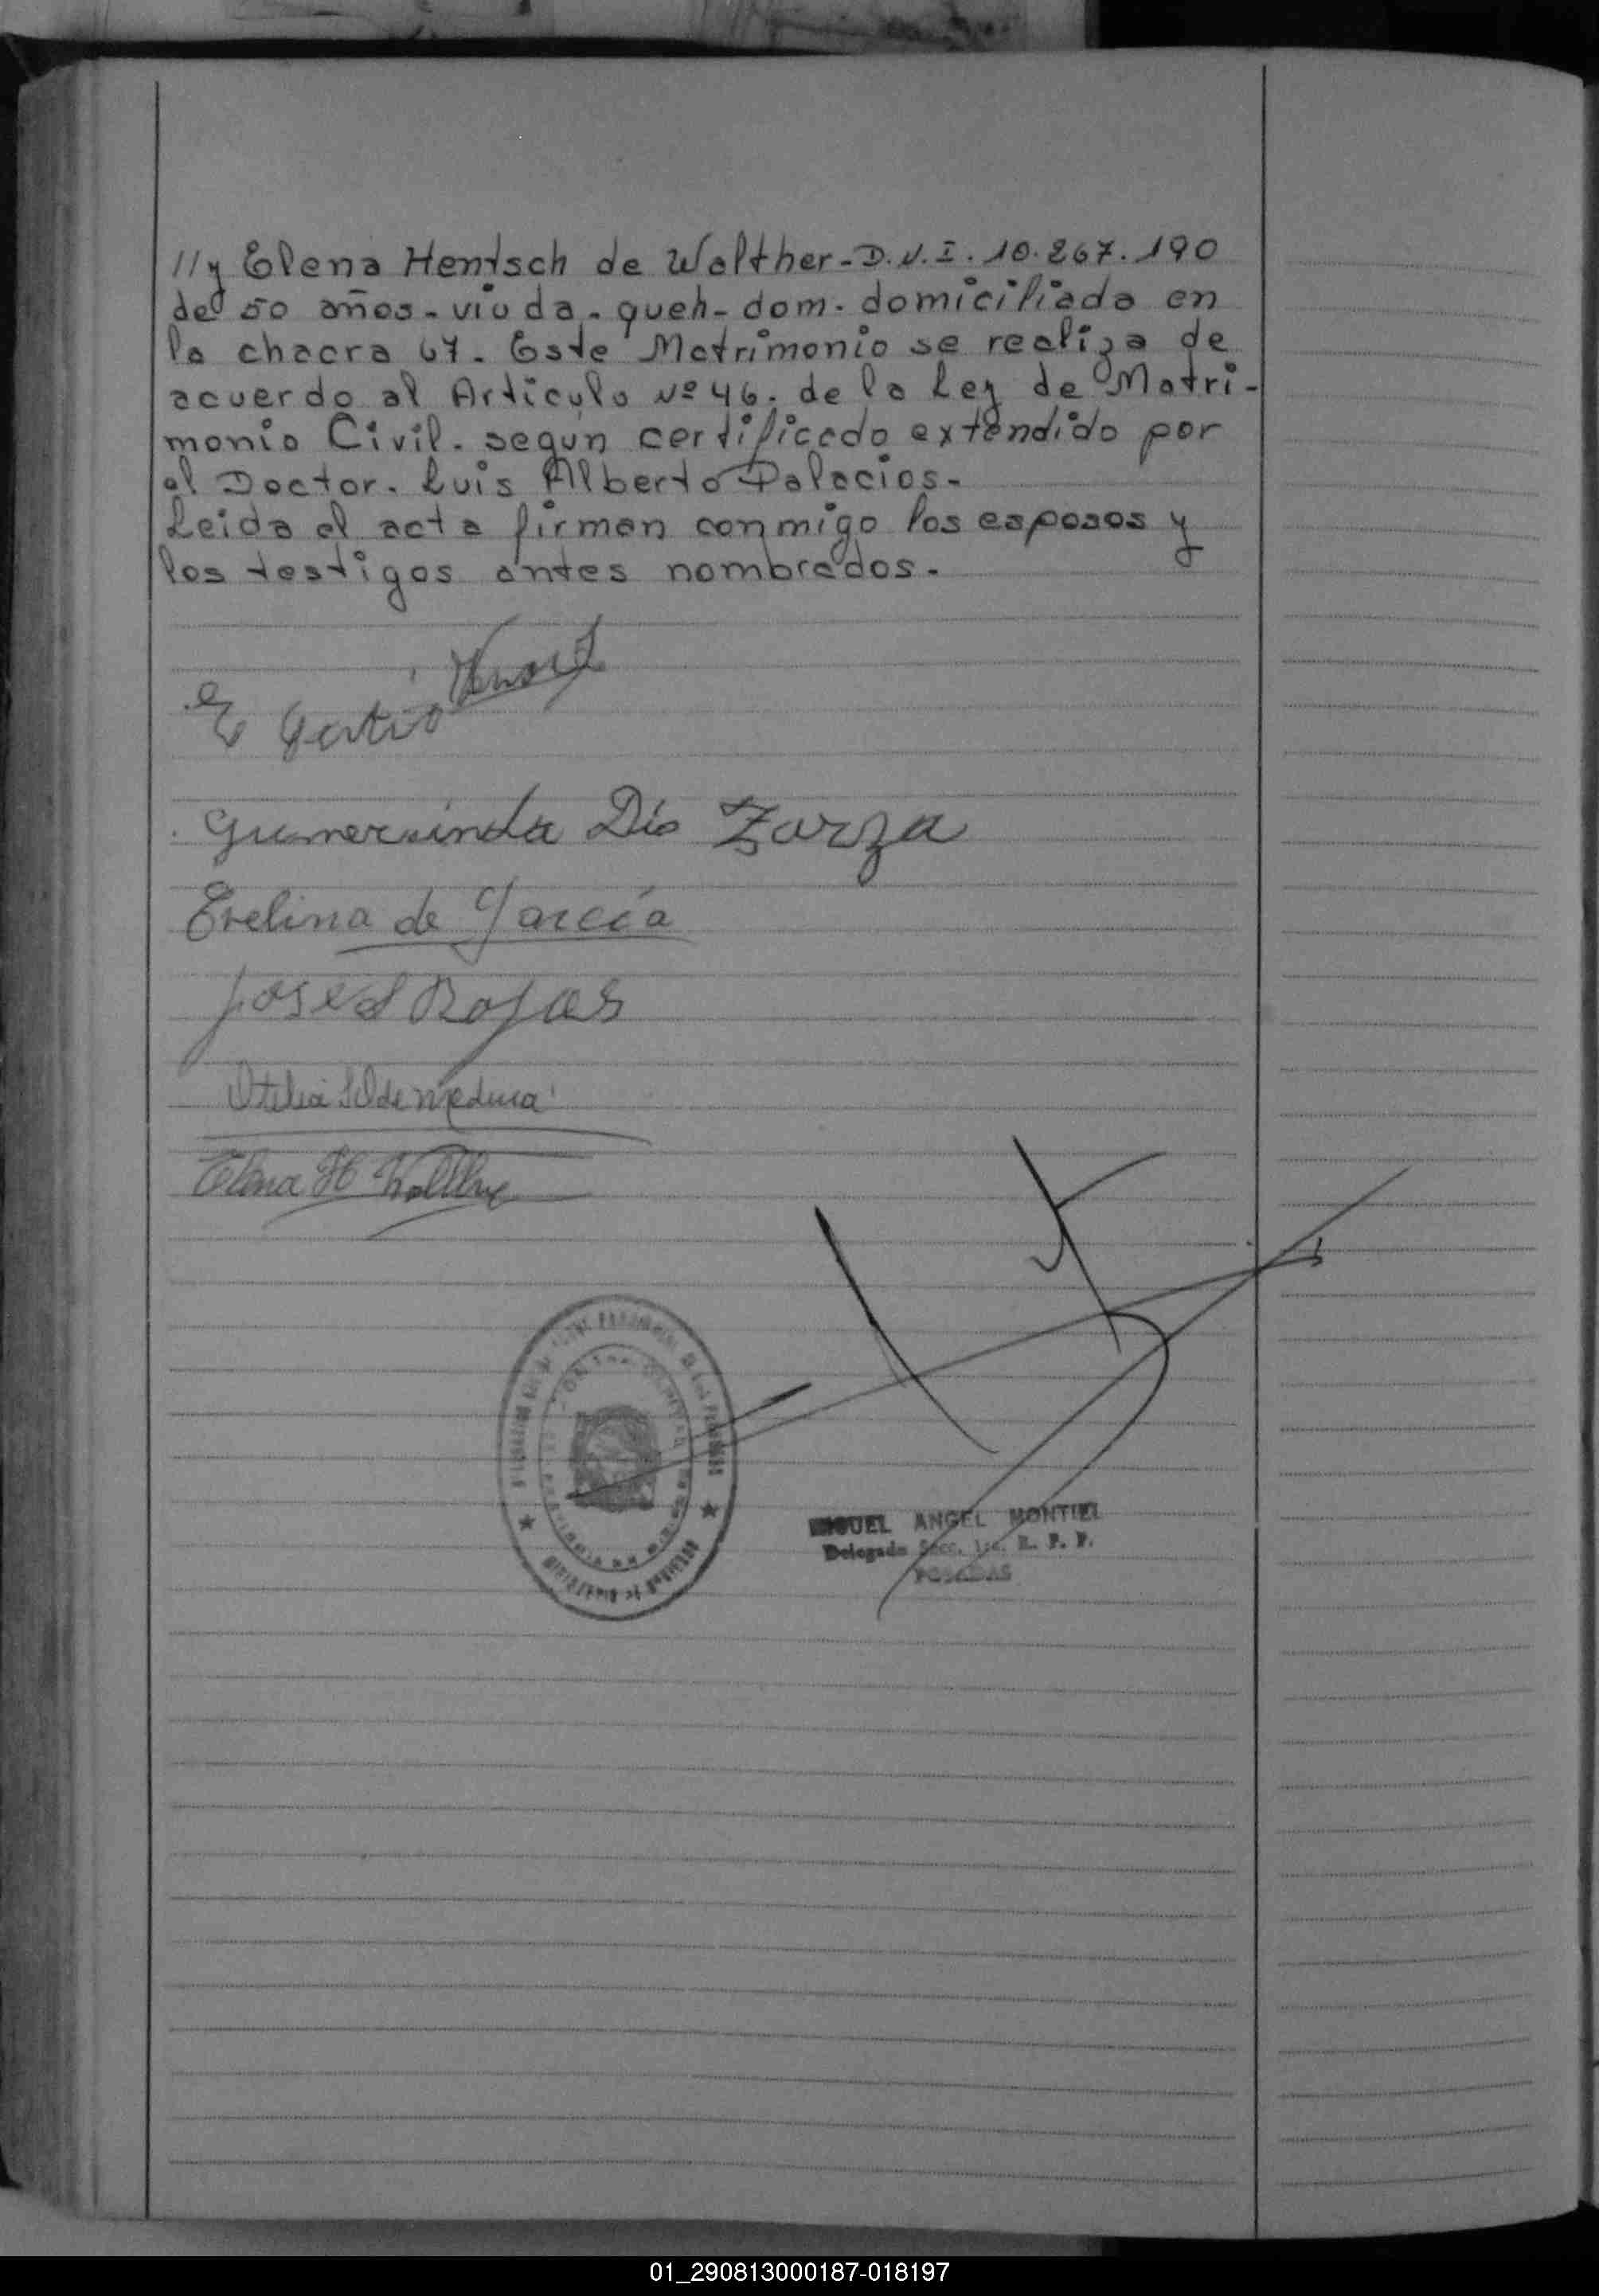 //y Elena Hentsch de Walther - D.N.I. 10.267.190
de 50 años - viuda - queh - dom. domiciliada en
la chacra 67. Este Matrimonio se realiza de
acuerdo al Articulo Nº 46. de la Ley de Matri-
monio Civil. segun certificado extendido por
el Doctor. Luis Alberto Palacios -
Leida el acta firman conmigo los esposos y
los testigos antes nombrados -
Gumersinda Zarza
Evelina de García
Rojas
Otilia
Elena H
MIGUEL ANGEL MONTIEL
Delegado Secc. R. P. P.
POSADAS
01_290813000187-018197